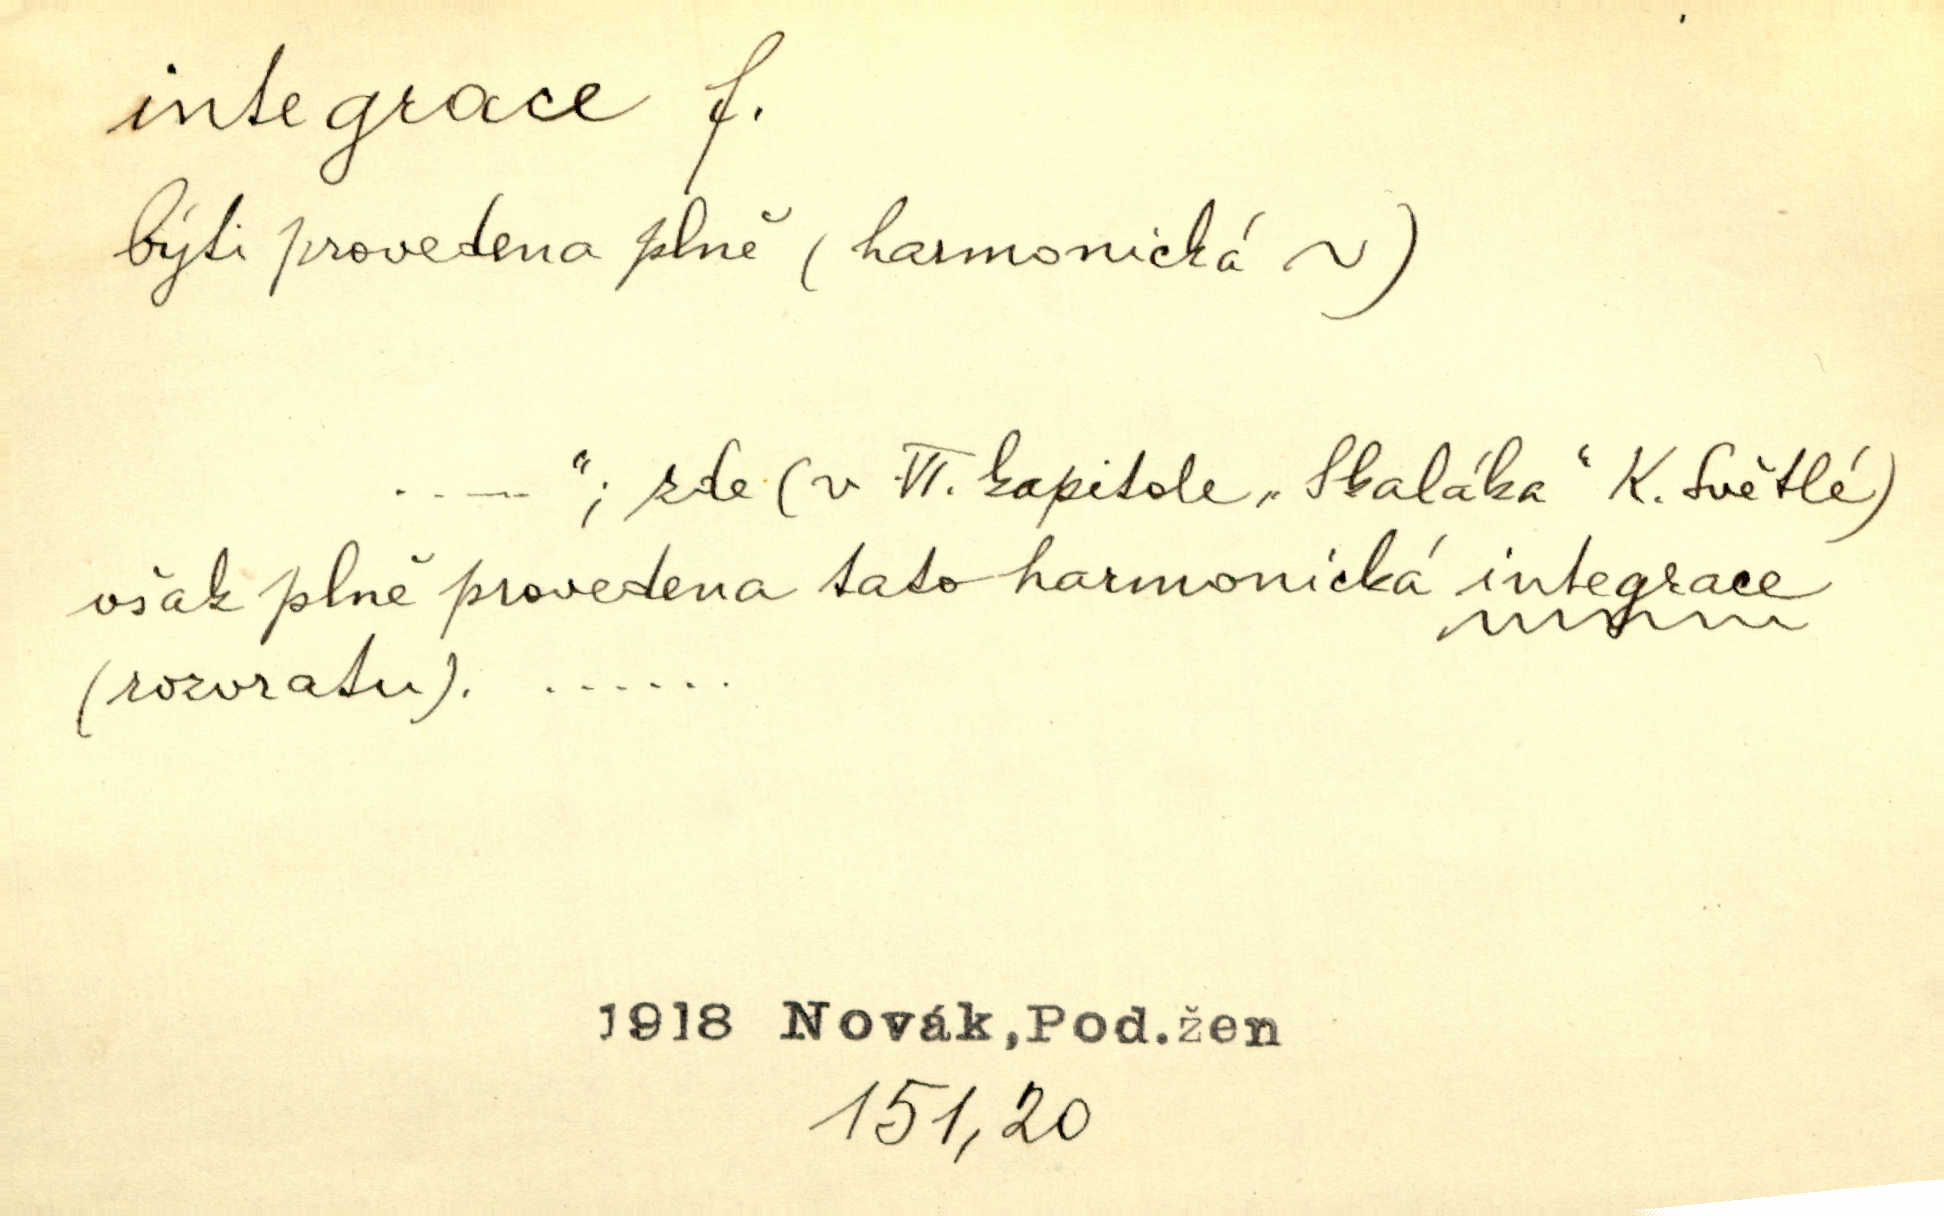 integrace f.
býti provedena plně (harmonická ~)
......“; zde (v VI. kapitole „Skaláka“ K. Světlé)
však plně provedena tato harmonická integrace
(rozvratu). ......
1918 Novák,Pod.žen
151,20